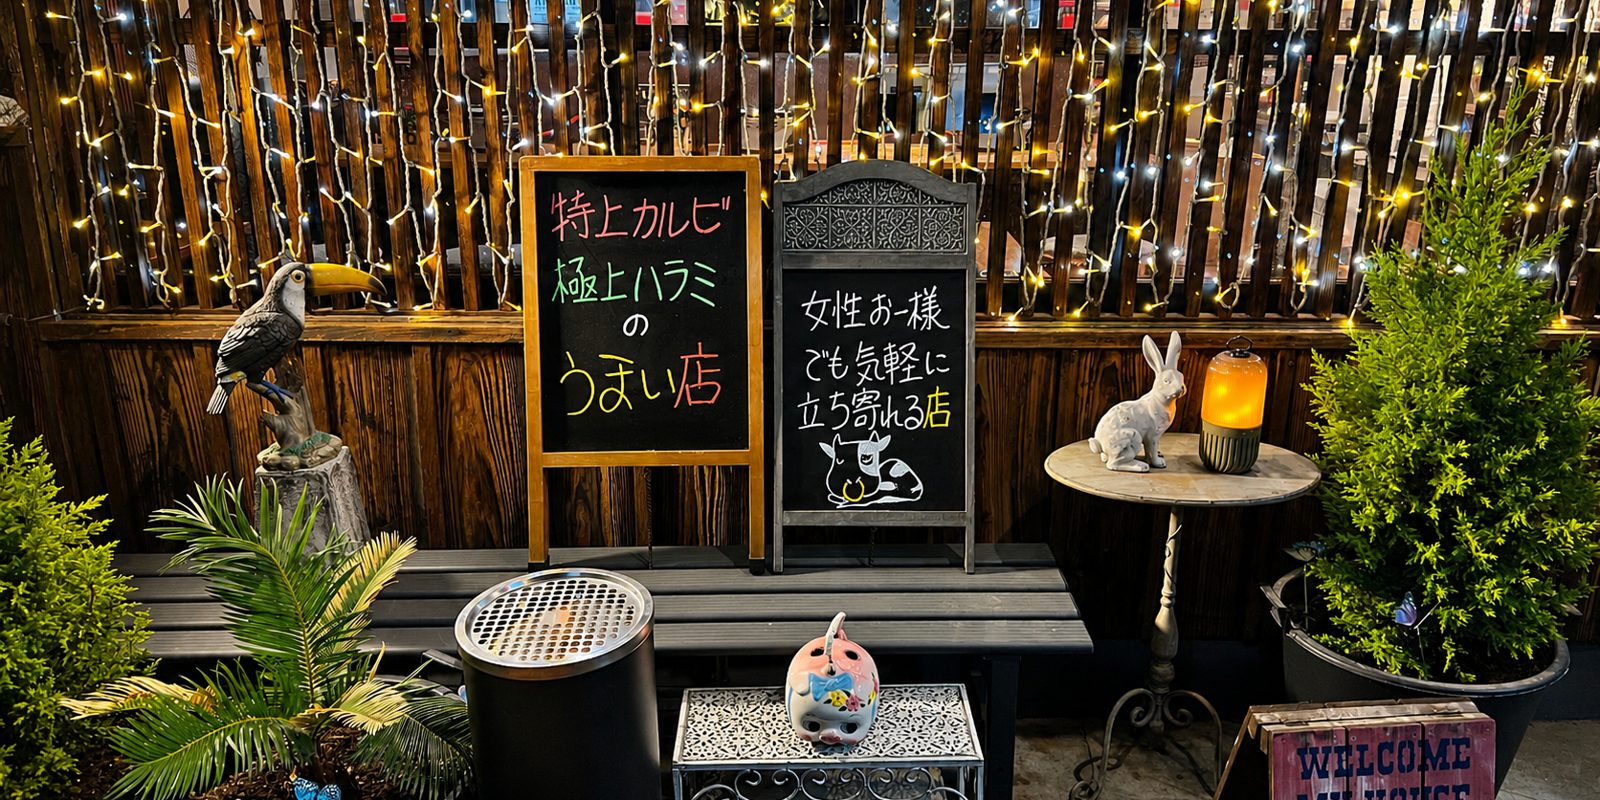 特上カルビ
極上ハラミ
の
うまい店
女性お一様
でも気軽に
立ち寄れる店
WELCOME
MY HOUSE